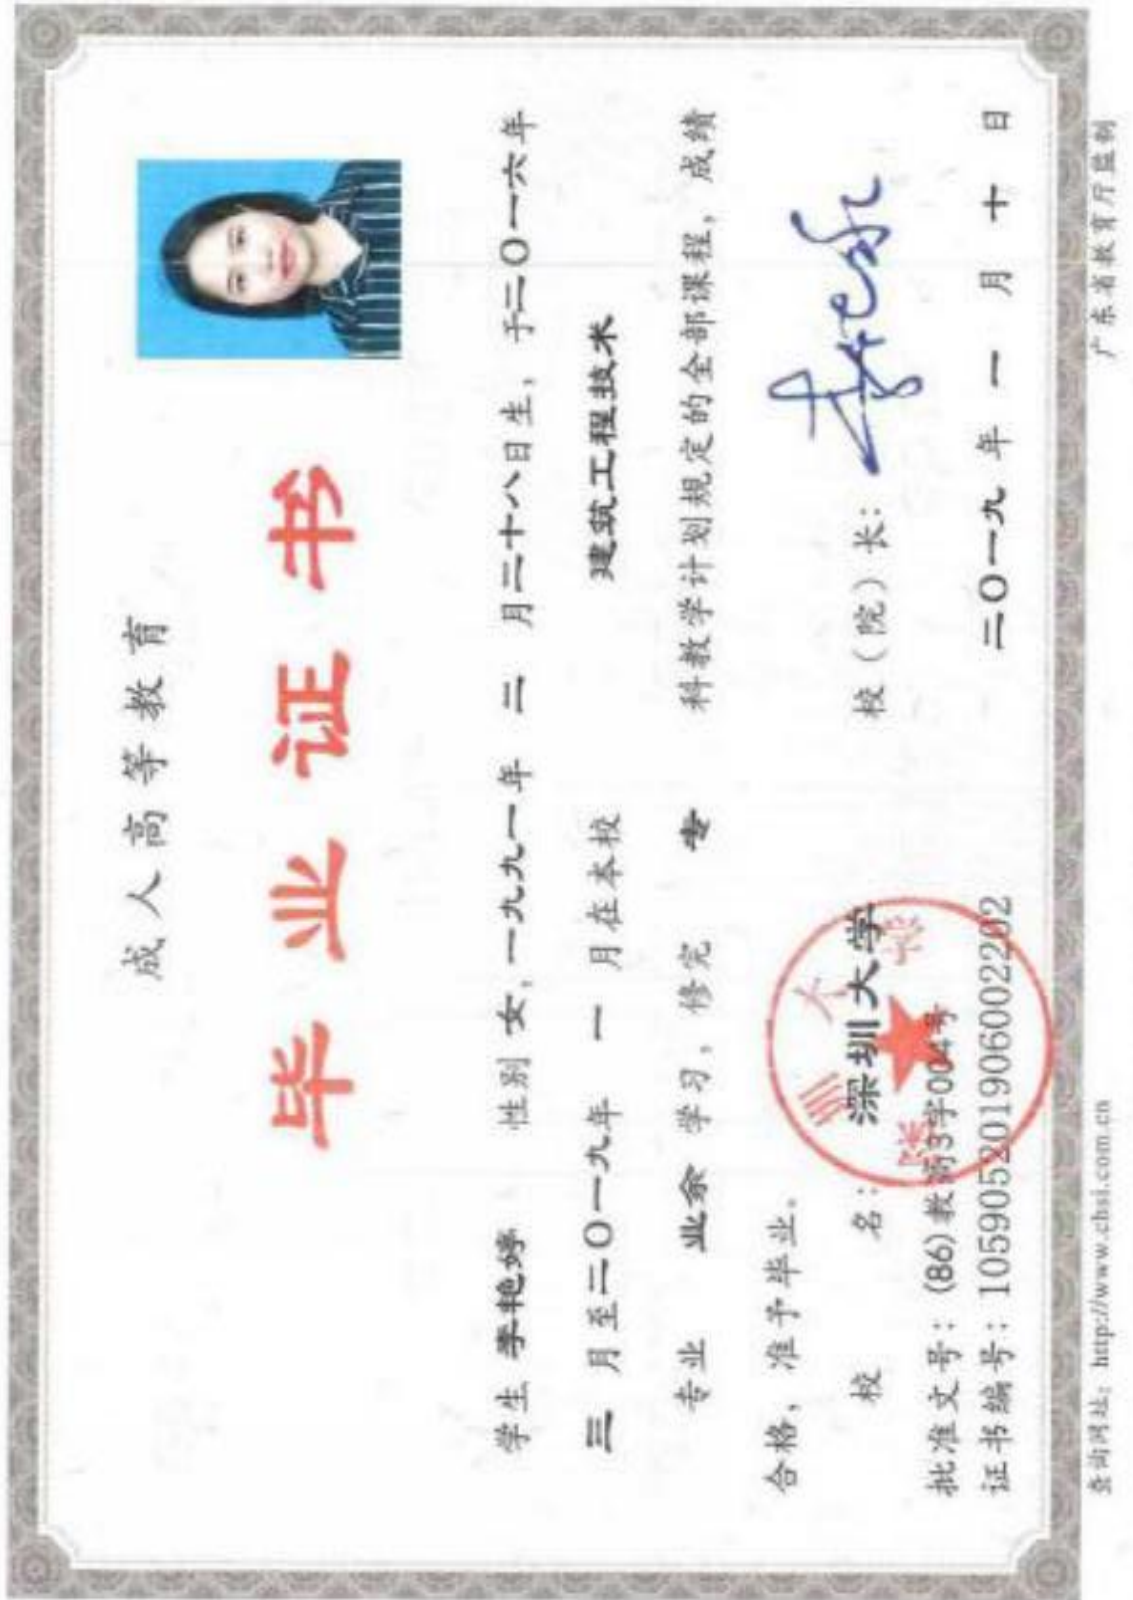 成人高等教育
毕业证书
学生 李艳婷 性别 女，一九九一年 二 月二十八日生，于二〇一六年
三 月至二〇一九年 一 月在本校 建筑工程技术
专业 业余 学习，修完 专 科教学计划规定的全部课程，成绩
合格，准予毕业。
校 名：深圳大学 校（院）长：
批准文号：(86)教高3字004号
证书编号：105905201906002202
二〇一九 年 一 月 十 日
查询网址：http://www.chsi.com.cn 广东省教育厅监制